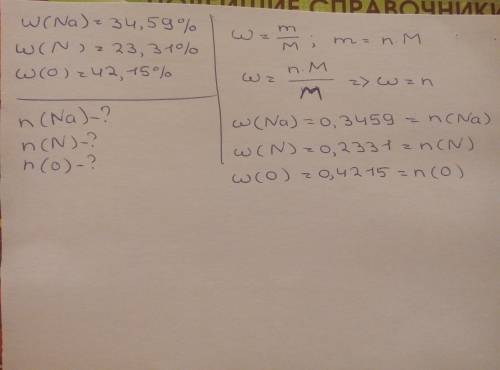 НОВЕЙШИЕ СПРАВОЧНИКИ
ω(Na) = 34,59%
ω(N) = 23,31%
ω(O) = 42,15%
n(Na)-?
n(N)-?
n(O)-?
ω = m/M ; m = n·M
ω = n·M/M => ω = n
ω(Na) = 0,3459 = n(Na)
ω(N) = 0,2331 = n(N)
ω(O) = 0,4215 = n(O)